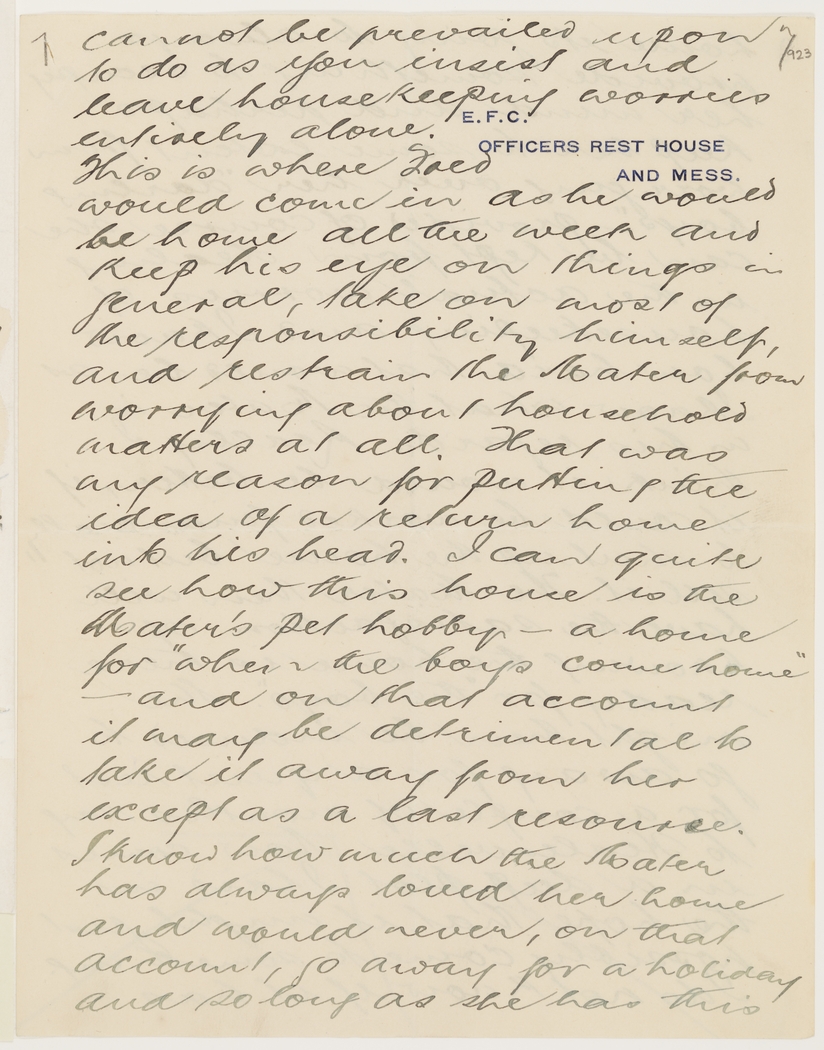 cannot be prevailed upon 7/923
to do as you insist and
leave housekeeping worries
entirely alone.
E.F.C.
OFFICERS REST HOUSE
AND MESS.
This is where Fred
would come in as he would
be home all the week and
keep his eye on things in
general, take on most of
the responsibility himself,
and restrain the Mater from
worrying about household
matters at all. That was
my reason for putting the
idea of a return home
into his head. I can quite
see how this house is the
Mater's pet hobby — a home
for "when the boys come home"
— and on that account
it may be detrimental to
take it away from her
except as a last resource.
I know how much the Mater
has always loved her home
and would never, on that
account, go away for a holiday
and so long as she has this